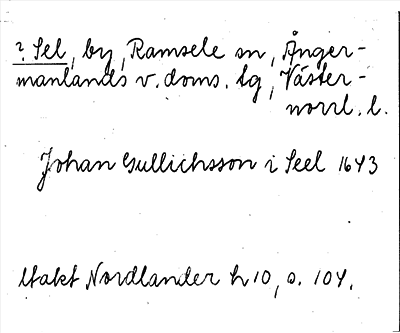 ? Sel, by, Ramsele sn, Ånger-
manlands v. doms. tg, Väster-
norrl. l.
Johan Gullichsson i Seel 1643
Utakt Nordlander h 10, s. 104.